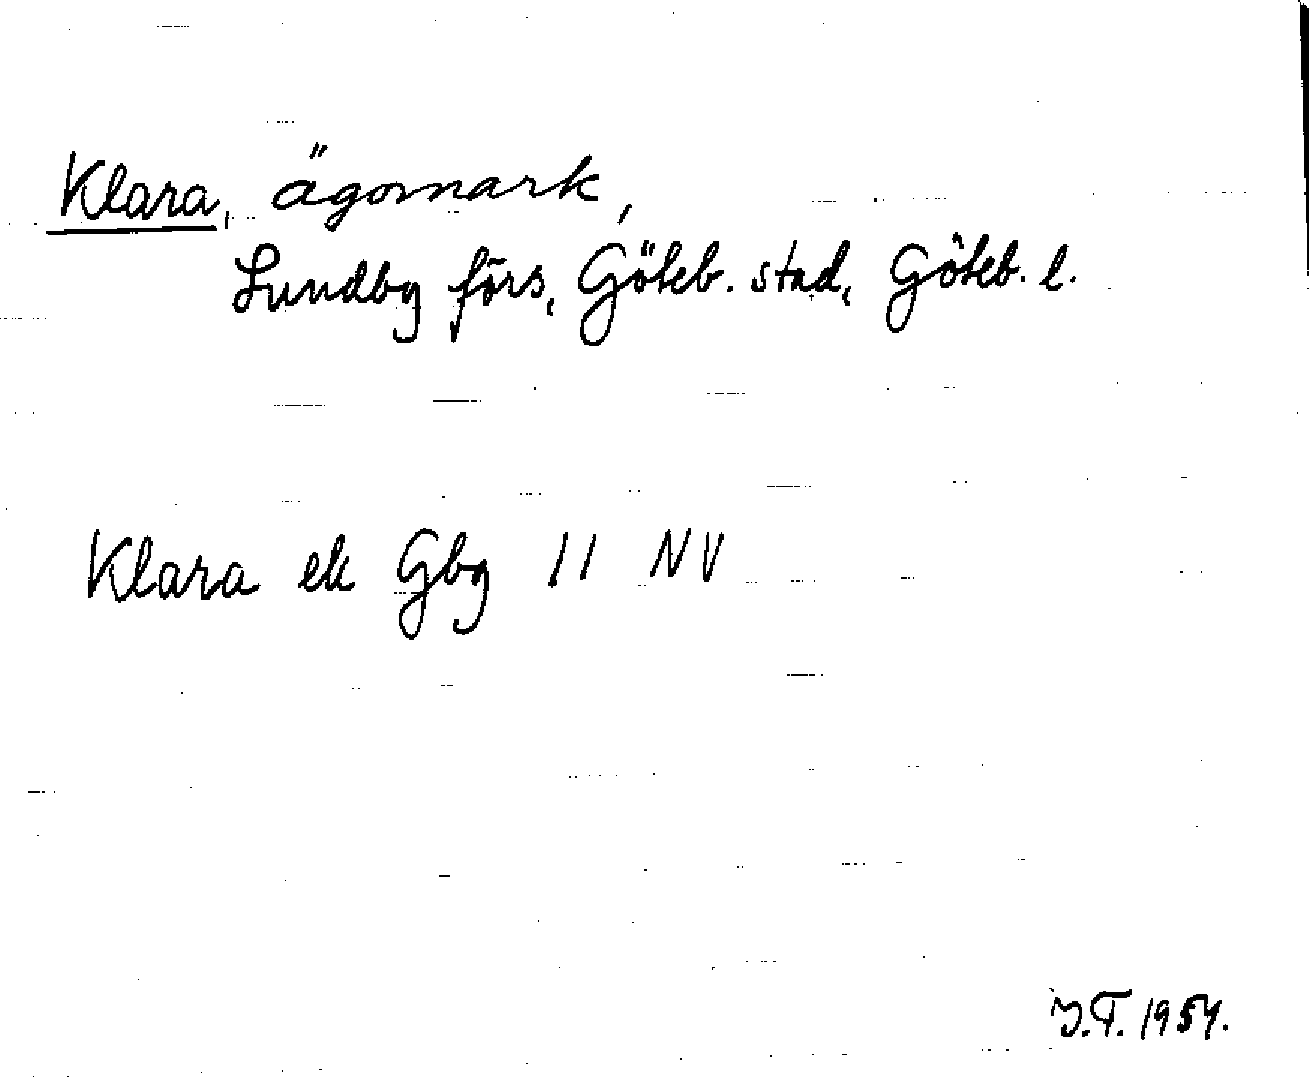 Klara, ägomark,
Lundby förs, Göteb. stad, Göteb. l.
Klara ek Gbg 11 NV
J.T. 1954.